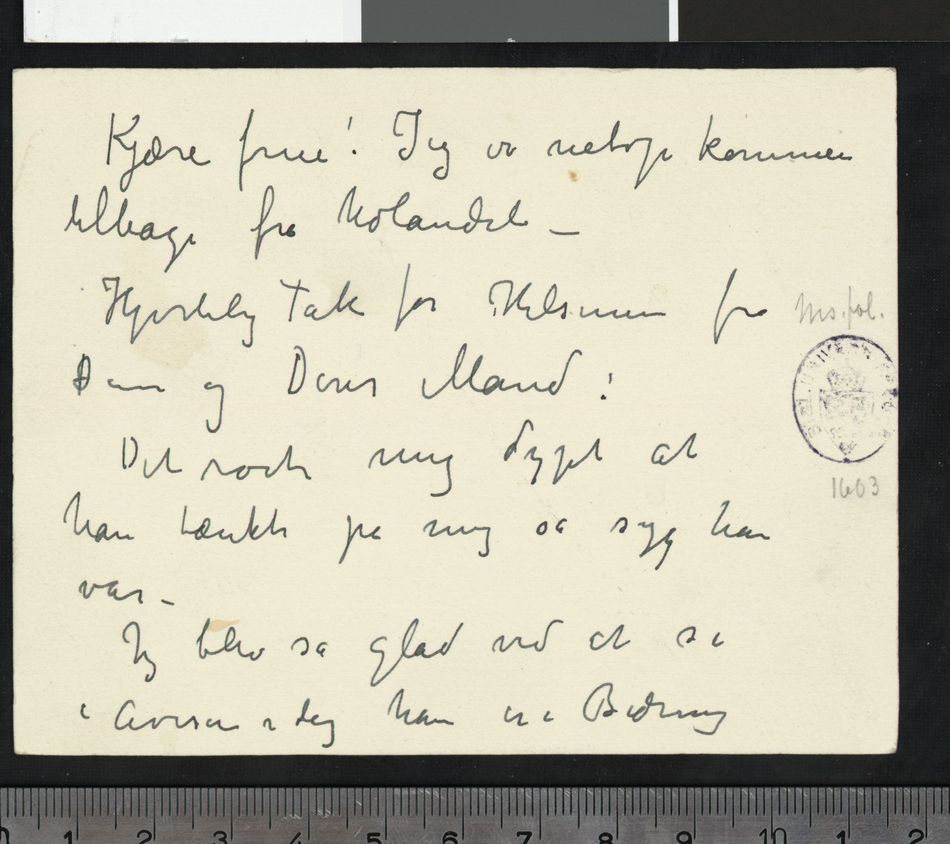 Kjære frue! Jeg var netop kommen
tilbage fra Udlandet –
Hjertelig Tak for Hilsenen fra
Dem og Deres Mand!
Det rørte mig dypt at
han tænkte på mig så syg han
var –
Jeg blev så glad ved at se
i Avisen idag han er i Bedring
Ms. fol.
1603
0 1 2 3 4 5 6 7 8 9 10 1 2